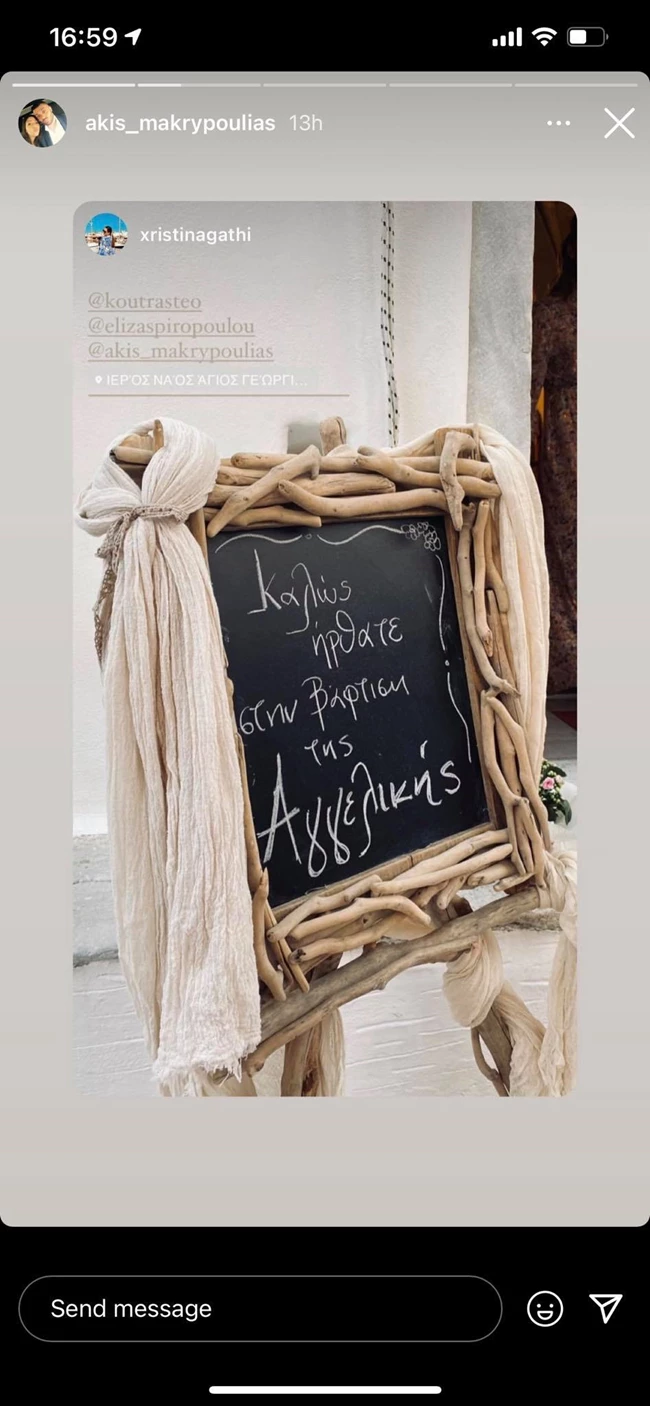 16:59
akis_makrypoulias 13h
xristinagathi
@koutrasteo
@elizaspiropoulou
@akis_makrypoulias
ΙΕΡΌΣ ΝΑΌΣ ΆΓΙΟΣ ΓΕΏΡΓΙ...
Καλώς
ήρθατε
στην βάφτιση
της
Αγγελικής
Send message